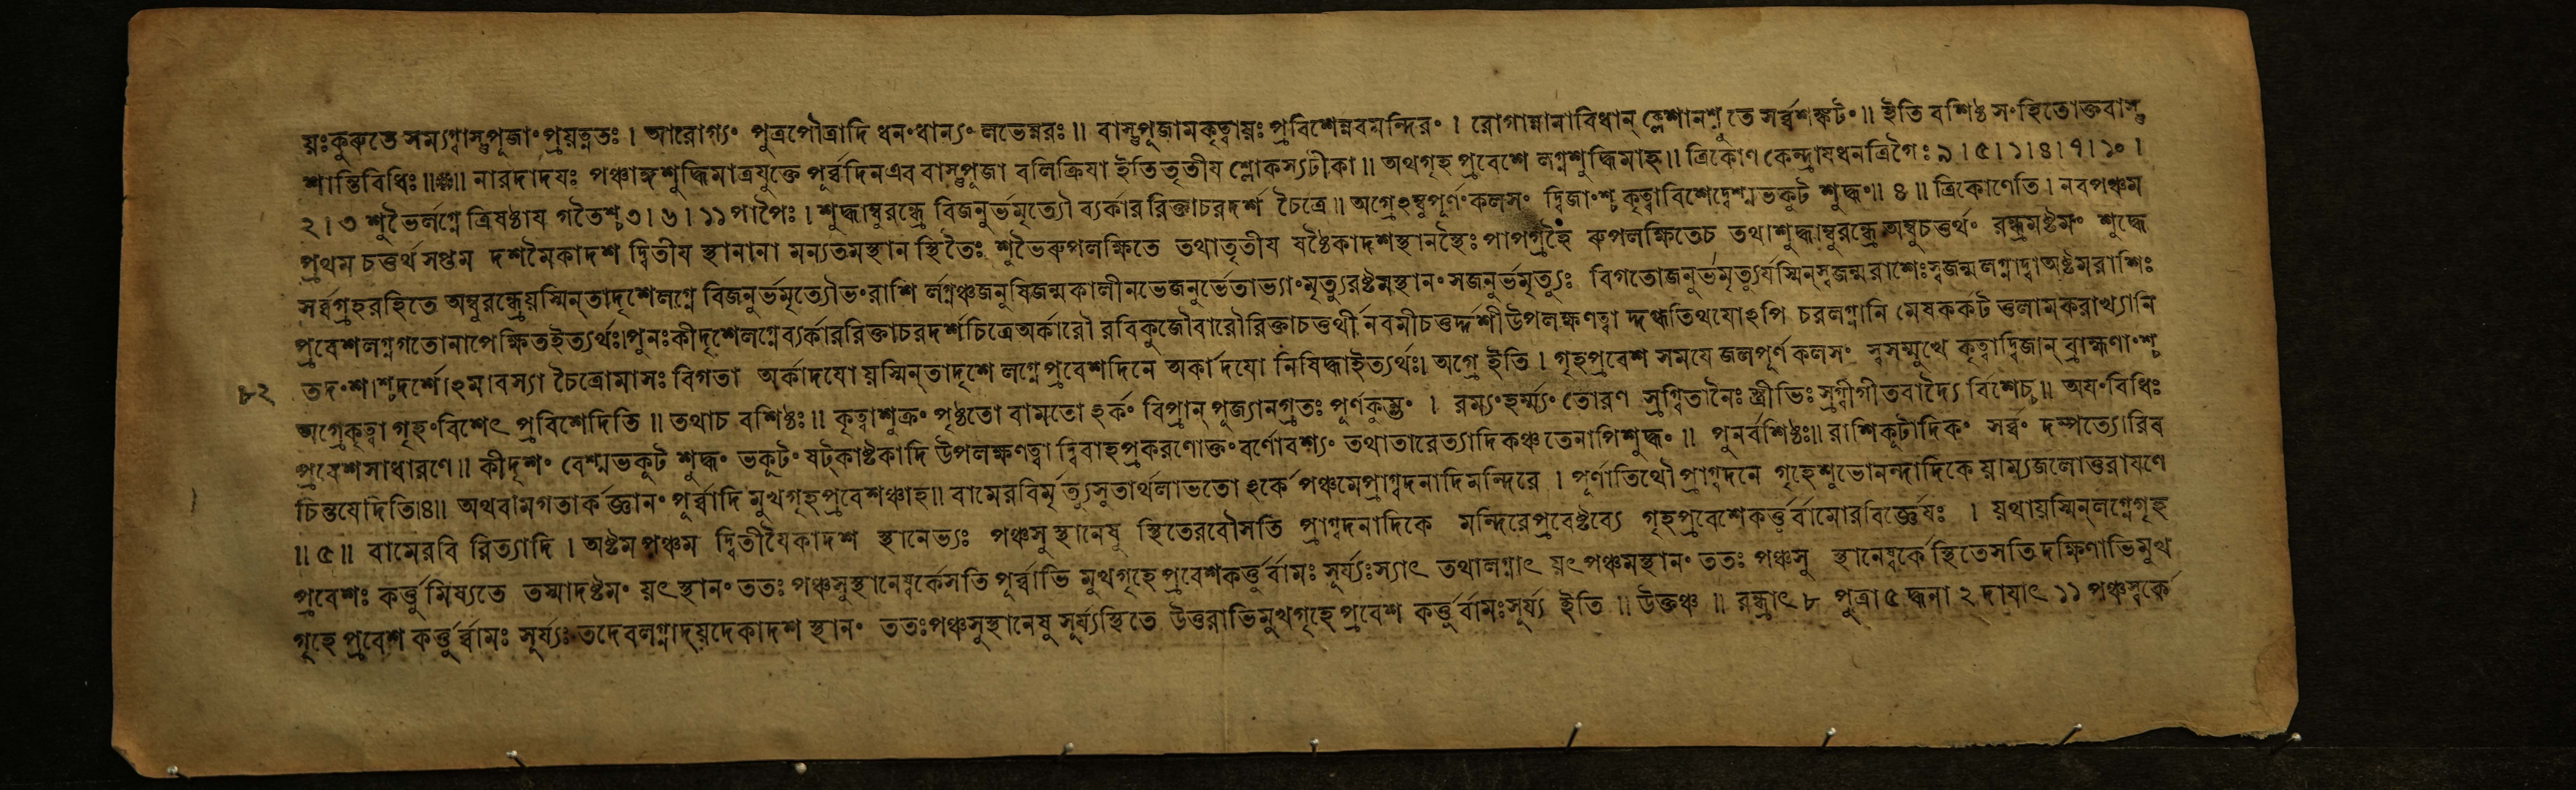 য়ঃকুৰুতে সম্যগ্বাস্তুপূজাং প্রয়ত্নতঃ । আরোগ্যং পুত্রপৌত্রাদি ধনং ধান্যং লভেন্নরঃ ॥ বাস্তুপূজামকৃত্বায়ঃ প্রবিশেন্নবমন্দিরং । রোগান্নানাবিধান্ ক্লেশানশ্নুতে সর্ব্বশঙ্কটং ॥ ইতি বশিষ্ঠ সংহিতোক্তবাস্তু
শান্তিবিধিঃ ॥ ॥ নারদাদযঃ পঞ্চাঙ্গশুদ্ধিমাত্রযুক্তে পূর্ব্বদিনএব বাস্তুপূজা বলিক্রিযা ইতিতৃতীয শ্লোকস্যটীকা ॥ অথগৃহ প্রবেশে লগ্নশুদ্ধিমাহ ॥ ত্রিকোণ কেন্দ্রাযধনত্রিগৈঃ ৯ । ৫ । ১ । ৪ । ৭ । ১০ ।
২ । ৩ শুভৈর্লগ্নে ত্রিষষ্ঠায গতৈশ্চ ৩ । ৬ । ১১ পাপৈঃ । শুদ্ধাম্বুরন্ধ্রে বিজনুর্ভমৃত্যৌ ব্যর্কার রিক্তাচরদর্শ চৈত্রে ॥ অগ্রেঽম্বুপূর্ণং কলসং দ্বিজাংশ্চ কৃত্বাবিশেদ্বেশ্মভকুট শুদ্ধং ॥ ৪ ॥ ত্রিকোণেতি । নবপঞ্চম
প্রথম চতুর্থ সপ্তম দশমৈকাদশ দ্বিতীয স্থানানা মন্যতমস্থান স্থিতৈঃ শুভৈৰুপলক্ষিতে তথাতৃতীয ষষ্ঠৈকাদশস্থানস্থৈঃ পাপর্গ্রহৈ ৰুপলক্ষিতেচ তথাশুদ্ধাম্বুরন্ধ্রে অম্বুচতুর্থং রন্ধ্রমষ্টমং শুদ্ধে
সর্ব্বগ্রহরহিতে অম্বুরন্ধ্রেয়স্মিন্তাদৃশেলগ্নে বিজনুর্ভমৃত্যৌভংরাশি র্লগ্নঞ্চজনুষিজন্মকালীনভেজনুর্ভেতাভ্যাংমৃত্যুরষ্টমস্থানংসজনুর্ভমৃত্যুঃ বিগতোজনুর্ভমৃত্যুর্যস্মিন্স্বজন্মরাশেঃস্বজন্মলগ্নাদ্বাঅষ্টমরাশিঃ
প্রবেশলগ্নগতোনাপেক্ষিতইত্যর্থঃ।পুনঃকীদৃশেলগ্নেব্যর্কাররিক্তাচরদর্শচিত্রেঅর্কারৌ রবিকুজৌবারৌরিক্তাচতুথী র্নবমীচতুর্দ্দশীউপলক্ষণত্বা দ্দগ্ধতিথযোঽপি চরলগ্নানি মেষকর্কট তুলামকরাখ্যানি
তদংশাশ্চদর্শোঽমাবস্যা চৈত্রোমাসঃ বিগতা অর্কাদযো য়স্মিন্তাদৃশে লগ্নেপ্রবেশদিনে অর্কাদযো নিষিদ্ধাইত্যর্থঃ। অগ্রে ইতি । গৃহপ্রবেশ সমযে জলপূর্ণ কলসং স্বসম্মুখে কৃত্বাদ্বিজান্ ব্রাহ্মণাংশ্চ
৮২
অগ্রেকৃত্বা গৃহংবিশেৎ প্রবিশেদিতি ॥ তথাচ বশিষ্ঠঃ ॥ কৃত্বাশুক্রং পৃষ্ঠতো বামতো ঽর্কং বিপ্রান্ পূজ্যানগ্রতঃ পূর্ণকুম্ভং । রম্যংহর্ম্ম্যং তোরণ স্রগ্বিতানৈঃ স্ত্রীভিঃ স্রগ্বীগীতবাদ্যৈ র্বিশেচ্চ ॥ অযংবিধিঃ
প্রবেশসাধারণে ॥ কীদৃশং বেশ্মভকুট শুদ্ধং ভকূটং ষট্কাষ্টকাদি উপলক্ষণত্বা দ্বিবাহপ্রকরণোক্তংবর্ণোবশ্যং তথাতারেত্যাদিকঞ্চতেনাপিশুদ্ধং ॥ পুনর্বশিষ্ঠঃ॥ রাশিকূটাদিকং সর্ব্বং দম্পত্যোরিব
চিন্তযেদিতি।৪॥ অথবামগতার্ক জ্ঞানং পূর্ব্বাদি মুখগৃহপ্রবেশঞ্চাহ॥ বামেরবিমৃত্যুসুতার্থলাভতো ঽর্কে পঞ্চমেপ্রাগ্বদনাদিমন্দিরে । পূর্ণাতিথৌ প্রাগ্বদনে গৃহেশুভোনন্দাদিকে য়াম্যজলোত্তরাযণে
॥ ৫ ॥ বামেরবি রিত্যাদি । অষ্টম পঞ্চম দ্বিতীযৈকাদশ স্থানেভ্যঃ পঞ্চসু স্থানেষু স্থিতেরবৌসতি প্রাগ্বদনাদিকে মন্দিরেপ্রবেষ্টব্যে গৃহপ্রবেশেকর্ত্তুর্বামোরবির্জ্ঞেযঃ । য়থায়স্মিন্লগ্নেগৃহ
প্রবেশঃ কর্ত্তুমিষ্যতে তস্মাদষ্টমং য়ৎস্থানং ততঃ পঞ্চসুস্থানেষ্বর্কেসতি পূর্ব্বাভি মুখগৃহে প্রবেশকর্ত্তুর্বামঃ সূর্য্যঃস্যাৎ তথালগ্নাৎ য়ৎপঞ্চমস্থানং ততঃ পঞ্চসু স্থানেষ্বর্কেস্থিতেসতি দক্ষিণাভিমুখ
গৃহে প্রবেশ কর্ত্তুর্ব্বামঃ সূর্য্যঃ তদেবলগ্নাদ্য়দেকাদশ স্থানং ততঃপঞ্চসুস্থানেষু সূর্য্যস্থিতে উত্তরাভিমুখগৃহেপ্রবেশ কর্ত্তুর্বামঃসূর্য্য ইতি ॥ উক্তঞ্চ ॥ রন্ধ্রাৎ ৮ পুত্রা ৫ দ্ধনা ২ দাযাৎ ১১ পঞ্চস্বর্কে